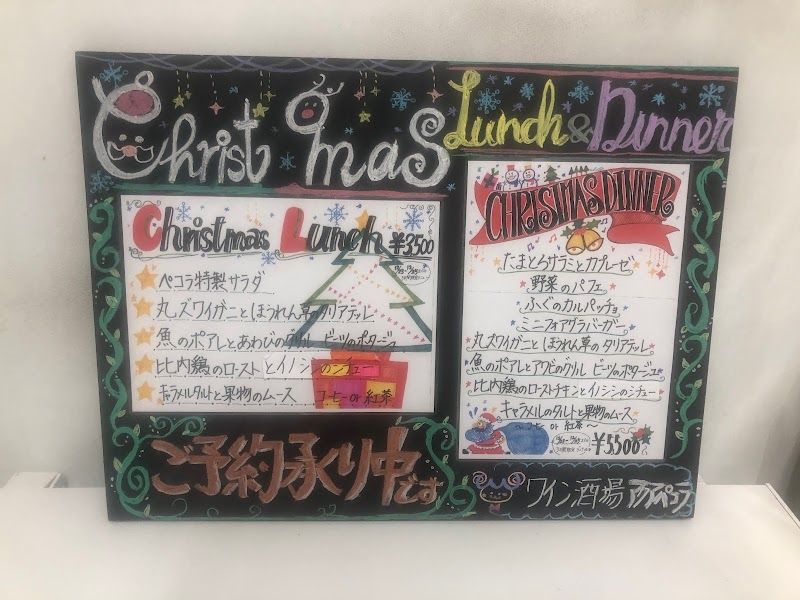 Christmas
Lunch & Dinner
Christmas Lunch ¥3500
ペコラ特製サラダ
丸ズワイガニとほうれん草のタリアテッレ
魚のポアレとあわびのグリル ビーツのポタージュ
比内鶏のローストとイノシシのシチュー
キャラメルタルトと果物のムース コーヒー or 紅茶
ご予約承り中です
CHRISTMAS DINNER
たまとろサラミとカプレーゼ
野菜のパフェ
ふぐのカルパッチョ
ミニフォアグラバーガー
丸ズワイガニとほうれん草のタリアテッレ
魚のポアレとアワビのグリル ビーツのポタージュ
比内鶏のローストチキンとイノシシのシチュー
キャラメルのタルトと果物のムース
コーヒー or 紅茶〜
¥5500
ワイン酒場